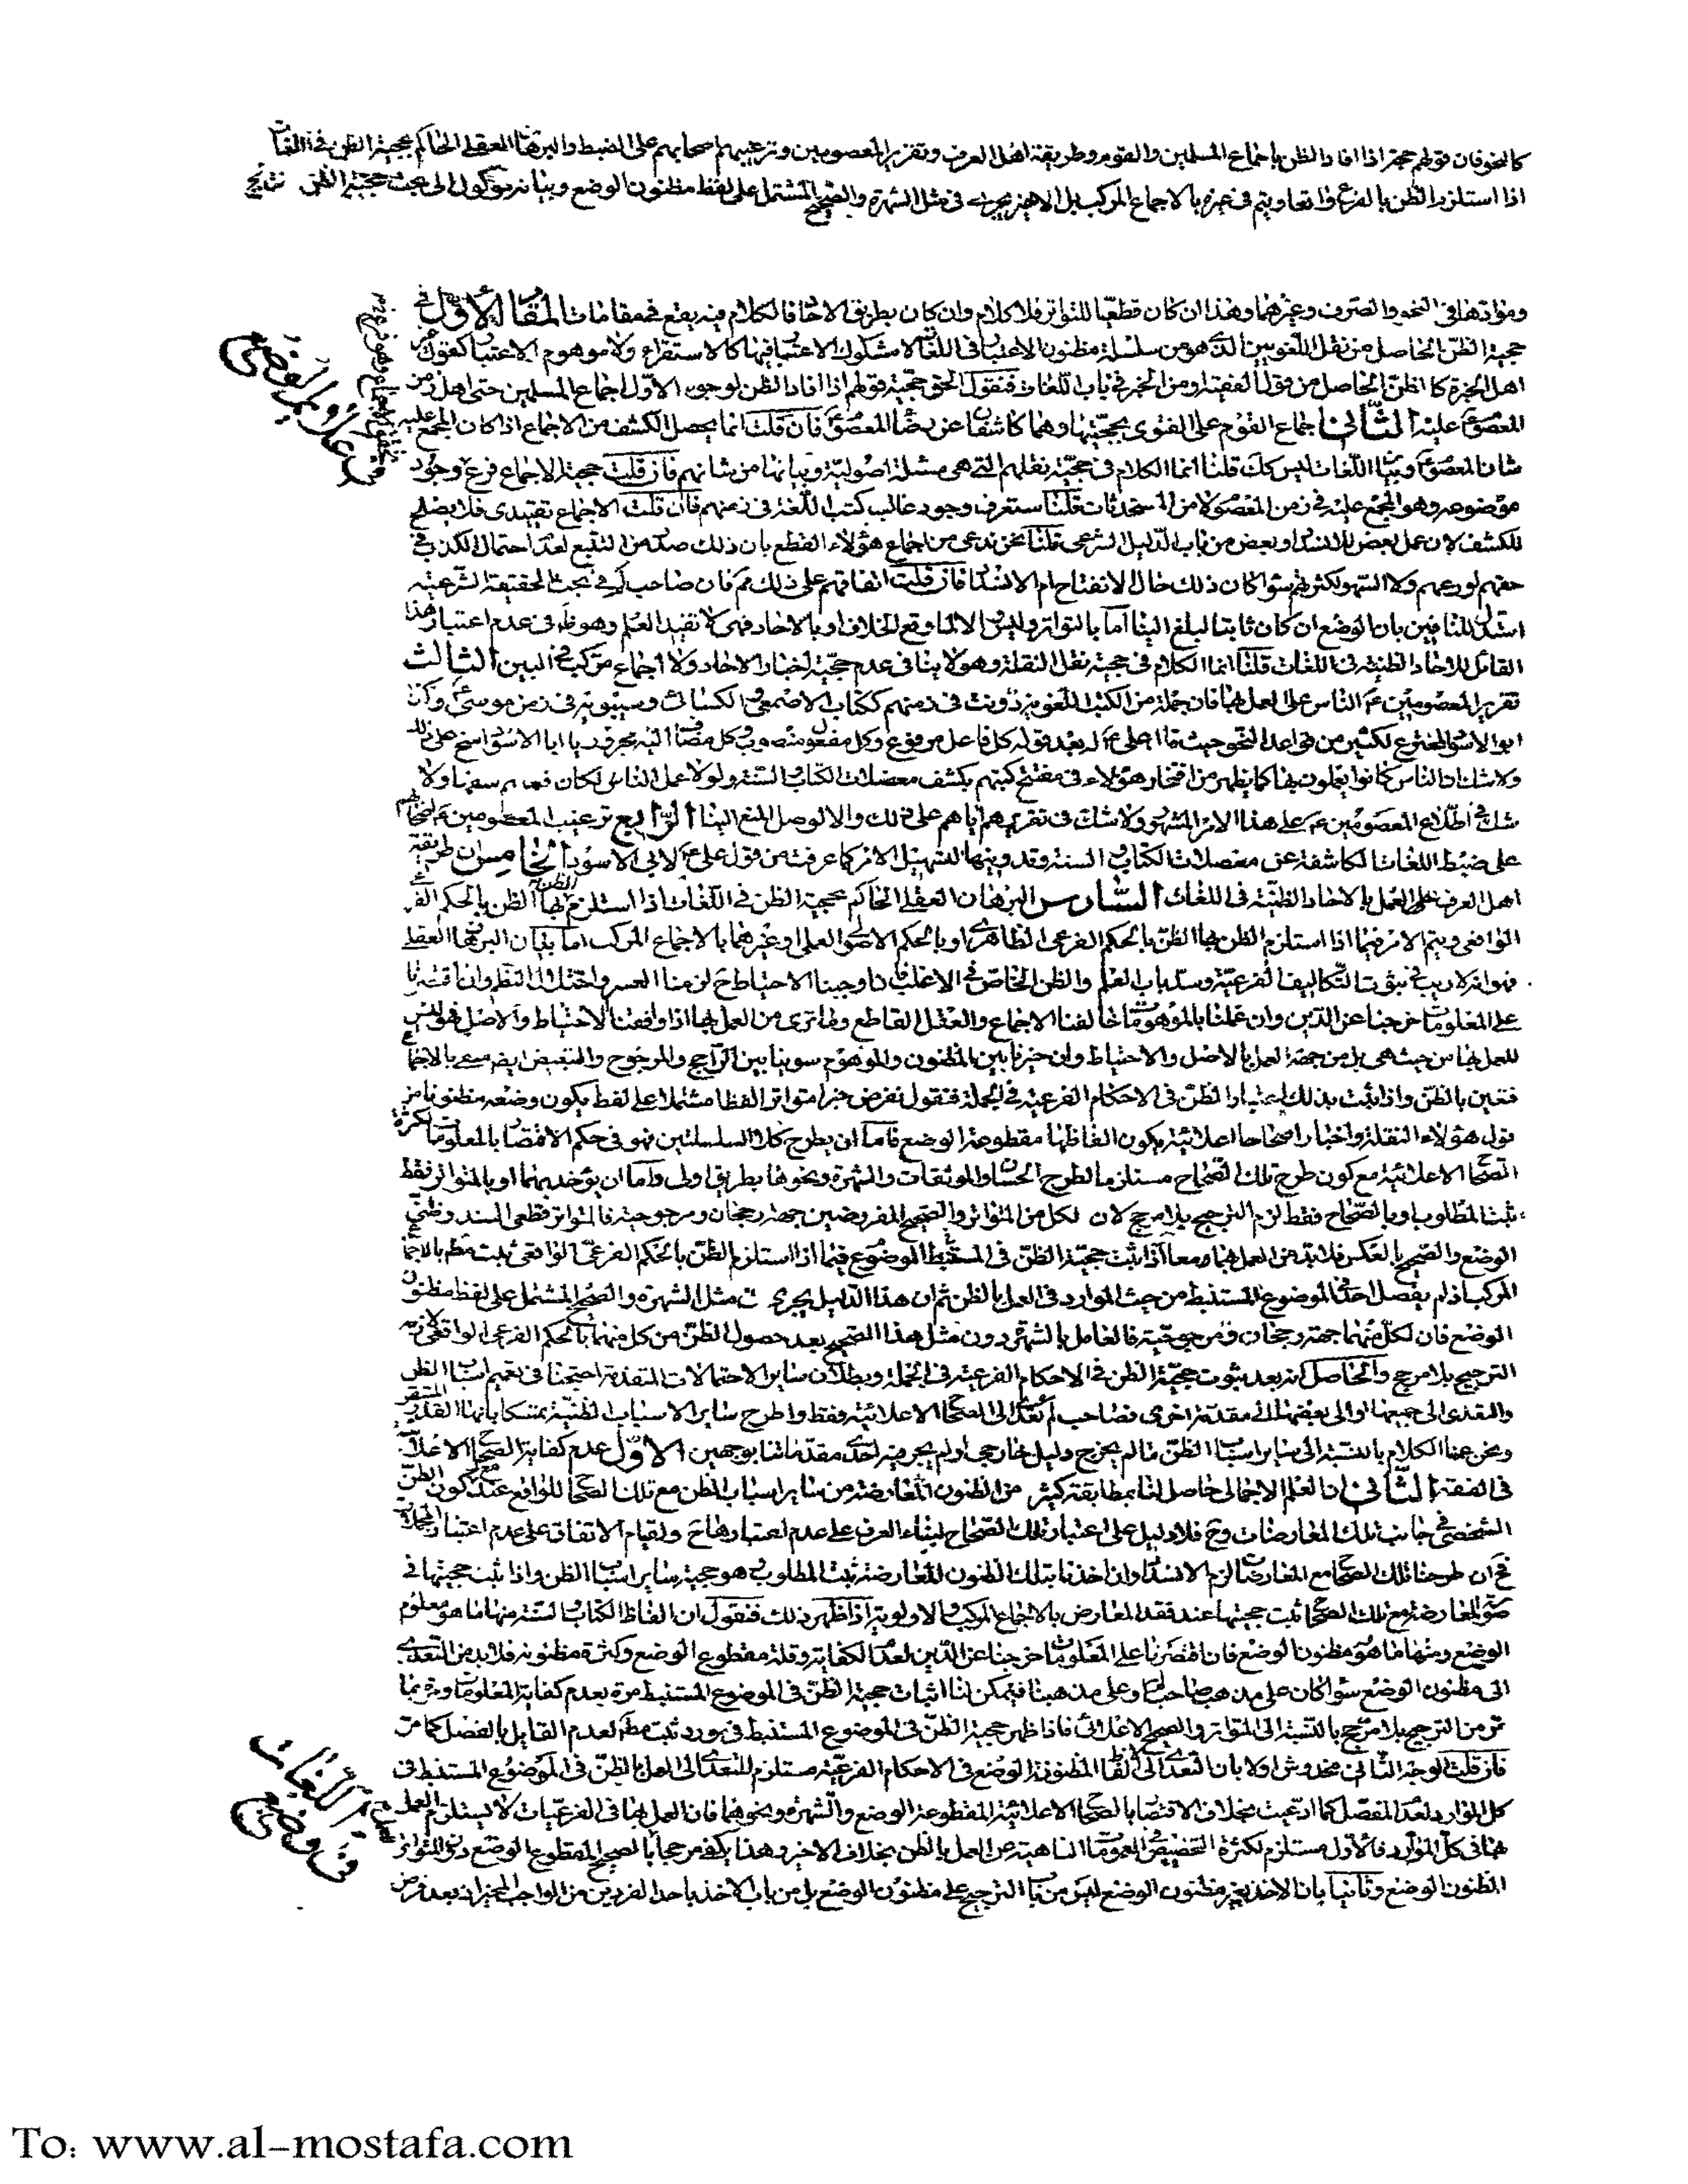 كالنحو فان قولهم حجة اذا افاد الظن باجماع المسلمين والقوم وطريقة اهل العرف وتقرير المعصومين وترغيبهم اصحابهم على الضبط والبرهان العقلى الحاكم بحجية الظن فى اللغات
اذا استلزم الظن بالفرع واقعا ويتم فى غيره بالاجماع المركب بل الاخير يجرى فى مثل الشهرة والصحيح المشتمل على لفظ مظنون الوضع وبيانه موكول الى بحث حجية الظن
وموادها فى النحو والصرف وغيرهما وهذا ان كان قطعيا للتواتر فلا كلام وان كان بطريق الاحاد فالكلام فيه يقع فى مقامات المقام الاول فى
حجية الظن الحاصل من نقل اللغويين الذى هو من سلسلة مظنون الاعتبار فى اللغات لا مشكوك الاعتبار فيها كالاستقراء ولا موهوم الاعتبار كقول
اهل الخبرة كالظن الحاصل من قول الفقيه ومن الخبر فى باب اللغات فنقول الحق حجية قولهم اذا افاد الظن لوجوه الاول اجماع المسلمين حتى اهل زمن
المعصوم عليه الثانى اجماع القوم على الفتوى بحجيتها وهما كاشفان عن رضاء المعصوم فان قلت انما يحصل الكشف من الاجماع اذا كان المجمع عليه
شان المعصوم وبيان اللغات ليس كك قلنا انما الكلام فى حجية نقلهم التى هى مسئلة اصولية وبيانها من شانهم فان قلت حجية الاجماع فرع وجود
موضوعه وهو المجمع عليه فى زمن المعصوم لا من المستحدثات قلنا ستعرف وجود غالب كتب اللغة فى زمنهم فان قلت الاجماع تقييدى فلا يصلح
للكشف لان عمل بعض للانسداد وبعض من باب الدليل الشرعى قلنا نحن ندعى من اجماع هؤلاء القطع بان ذلك صدر من التتبع لبعد احتمال الكذب فى
حقهم لورعهم ولا السهو لكثرتهم سواء كان ذلك حال الانفتاح ام الانسداد فان قلت اتفاقهم على ذلك مم فان صاحب فى بحث الحقيقة الشرعية
استدل للنافين بان الوضع ان كان ثابتا لبلغ الينا اما بالتواتر وليس والا لما وقع الخلاف او بالاحاد فهى لا تفيد العلم وهو ظ فى عدم اعتبار هذا
القائل للاحاد الظنية فى اللغات قلنا انما الكلام فى حجية نقل النقلة وهو لا ينافى عدم حجية اخبار الاحاد ولا اجماع مركب فى البين الثالث
تقرير المعصومين ع الناس على العمل بها فان جملة من الكتب اللغوية دونت فى زمنهم ككتاب الاصمعى والكسائى وسيبويه فى زمن موسى وكان
ابو الاسود المخترع لكثير من قواعد النحو حيث قال على ع له بعد قوله كل فاعل مرفوع وكل مفعول منصوب وكل مضاف اليه مجرور يا ابا الاسود انسخ على ذلك
ولا شك ان الناس كانوا يعملون بها كما يظهر من افتخار هؤلاء فى مفتتح كتبهم بكشف معضلات الكتاب والسنة ولولا عمل الناس لكان سفها ولا
شك فى اطلاع المعصومين ع على هذا الامر المشهور ولا شك فى تقريرهم اياهم على ذلك والا لوصل المنع الينا الرابع ترغيب المعصومين ع اصحابهم
على ضبط اللغات الكاشفة عن معضلات الكتاب والسنة وتدوينها لتسهيل الامر كما عرفت من قول على ع لابى الاسود الخامس ان طريقة
اهل العرف على العمل بالاحاد الظنية فى اللغات السادس البرهان العقلى الحاكم بحجية الظن فى اللغات اذا استلزم الظن بها الظن بالحكم الفرعى
الواقعى ويتم الامر فيما اذا استلزم الظن بها الظن بالحكم الفرعى الظاهرى او بالحكم الاصولى العملى او غيرهما بالاجماع المركب اما بيان البرهان العقلى
فهو انه لا ريب فى ثبوت التكاليف الفرعية وسد باب العلم والظن الخاص فى الاغلب فان اوجبنا الاحتياط ح لزمنا العسر واختل النظم وان اقتصرنا
على المعلومات خرجنا عن الدين وان عملنا بالموهومات خالفنا الاجماع والعقل القاطع وما ترى من العمل بها اذا وافقنا الاحتياط والاصل فهو ليس
للعمل بها من حيث هى بل من جهة العمل بالاصل والاحتياط وان خيرنا بين المظنون والموهوم سوينا بين الراجح والمرجوح والتبعيض ايضا منفى بالاجماع
فتعين بالظن واذا ثبت بذلك اعتبار الظن فى الاحكام الفرعية فى الجملة فنقول نفرض خبرا متواترا لفظا مشتملا على لفظ يكون وضعه مظنونا من
قول هؤلاء النقلة واخبارا صحاحا اعلائية يكون الفاظها مقطوعة الوضع فاما ان يطرح كلا السلسلتين فهو فى حكم الاقتصار بالمعلومات لكثرة
الصحاح الاعلائية مع كون طرح تلك الصحاح مستلزما لطرح الحسان والموثقات والشهرة ونحوها بطريق اولى واما ان يؤخذ بهما او بالمتواتر فقط
ثبت المطلوب او بالصحاح فقط لزم الترجيح بلا مرجح لان لكل من المتواتر والصحيح المفروضين جهة رجحان ومرجوحية فالمتواتر قطعى السند وظنى
الوضع والصحيح بالعكس فلا بد من العمل بهما معا اذا ثبت حجية الظن فى المستنبط الموضوع فيما اذا استلزم الظن بالحكم الفرعى الواقعى ثبت مطم بالاجماع
المركب اذ لم يفصل احد فى الموضوع المستنبط من حيث الموارد فى العمل بالظن ثم ان هذا الدليل يجرى فى مثل الشهرة والصحيح المشتمل على لفظ مظنون
الوضع فان لكل منهما جهة رجحان ومرجوحية فالعامل بالشهرة دون مثل هذا الصحيح بعد حصول الظن من كل منهما بالحكم الفرعى الواقعى لازمه
الترجيح بلا مرجح والحاصل انه بعد ثبوت حجية الظن فى الاحكام الفرعية فى الجملة وبطلان ساير الاحتمالات المتقدمة احتجنا فى تعميم اسباب الظن
والتعدى الى جميعها او الى بعضها الى مقدمة اخرى فصاحب لم تعدى الى الصحاح الاعلائية فقط واطرح ساير الاسباب الظنية متمسكا بانها القدر المتيقن
ونحن عممنا الكلام بالنسبة الى ساير اسباب الظن ما لم يخرج دليل خارجى او لم يجر فيه احدى مقدماتنا بوجهين الاول عدم كفاية الصحاح الاعلائية
فى الفقه الثانى ان العلم الاجمالى حاصل لنا بمطابقة كثير من الظنون المتعارضة من ساير اسباب الظن مع تلك الصحاح للواقع عند كون الظن
الشخصى فى جانب تلك المعارضات وح فلا دليل على اعتبار تلك الصحاح لبناء العرف على عدم اعتبارها ح ولقيام الاتفاق على عدم اعتبار
فح ان طرحنا تلك الصحاح مع المعارضات لزم الانسداد وان اخذنا بتلك الظنون المتعارضة ثبت المطلوب هو حجية ساير اسباب الظن واذا ثبت حجيتها فى
صورة المعارضة مع تلك الصحاح ثبت حجيتها عند فقد المعارض بالاجماع المركب والاولوية اذا ظهر ذلك فنقول ان الفاظ الكتاب والسنة منها ما هو معلوم
الوضع ومنها ما هو مظنون الوضع فان اقتصرنا على المعلومات خرجنا عن الدين لعدم الكفاية وقلة مقطوع الوضع وكثرة مظنونه فلا بد من التعدى
الى مظنون الوضع سواء كان على مذهب صاحب لم وعلى مذهبنا فيمكن لنا اثبات حجية الظن فى الموضوع المستنبط مرة بعدم كفاية المعلومات ومرة بما
مر من الترجيح بلا مرجح بالنسبة الى المتواتر والصحيح الاعلائى فاذا ظهر حجية الظن فى الموضوع المستنبط فى مورد ثبت مطم لعدم القايل بالفصل كما مر
فان قلت الوجه الثانى مخدوش اولا بان التعدى الى الالفاظ المظنونة الوضع فى الاحكام الفرعية مستلزم للتعدى الى العمل بالظن فى الموضوع المستنبط فى
كل الموارد لعدم المفصل كما ادعيت بخلاف الاقتصار بالصحاح الاعلائية المقطوعة الوضع والشهرة ونحوهما فان العمل بها فى الفرعيات لا يستلزم العمل
بها فى كل الموارد فالاول مستلزم لكثرة التخصيص فى العمومات الناهية عن العمل بالظن بخلاف الاخير وهذا يكفى مرجحا بالصحيح المقطوع الوضع دون المتواتر
المظنون الوضع وثانيا بان الاخذ بغير مظنون الوضع ليس من باب الترجيح على مظنون الوضع بل من باب الاخذ باحد الفردين من الواجب المخير ان بعد فرض
To: www.al-mostafa.com